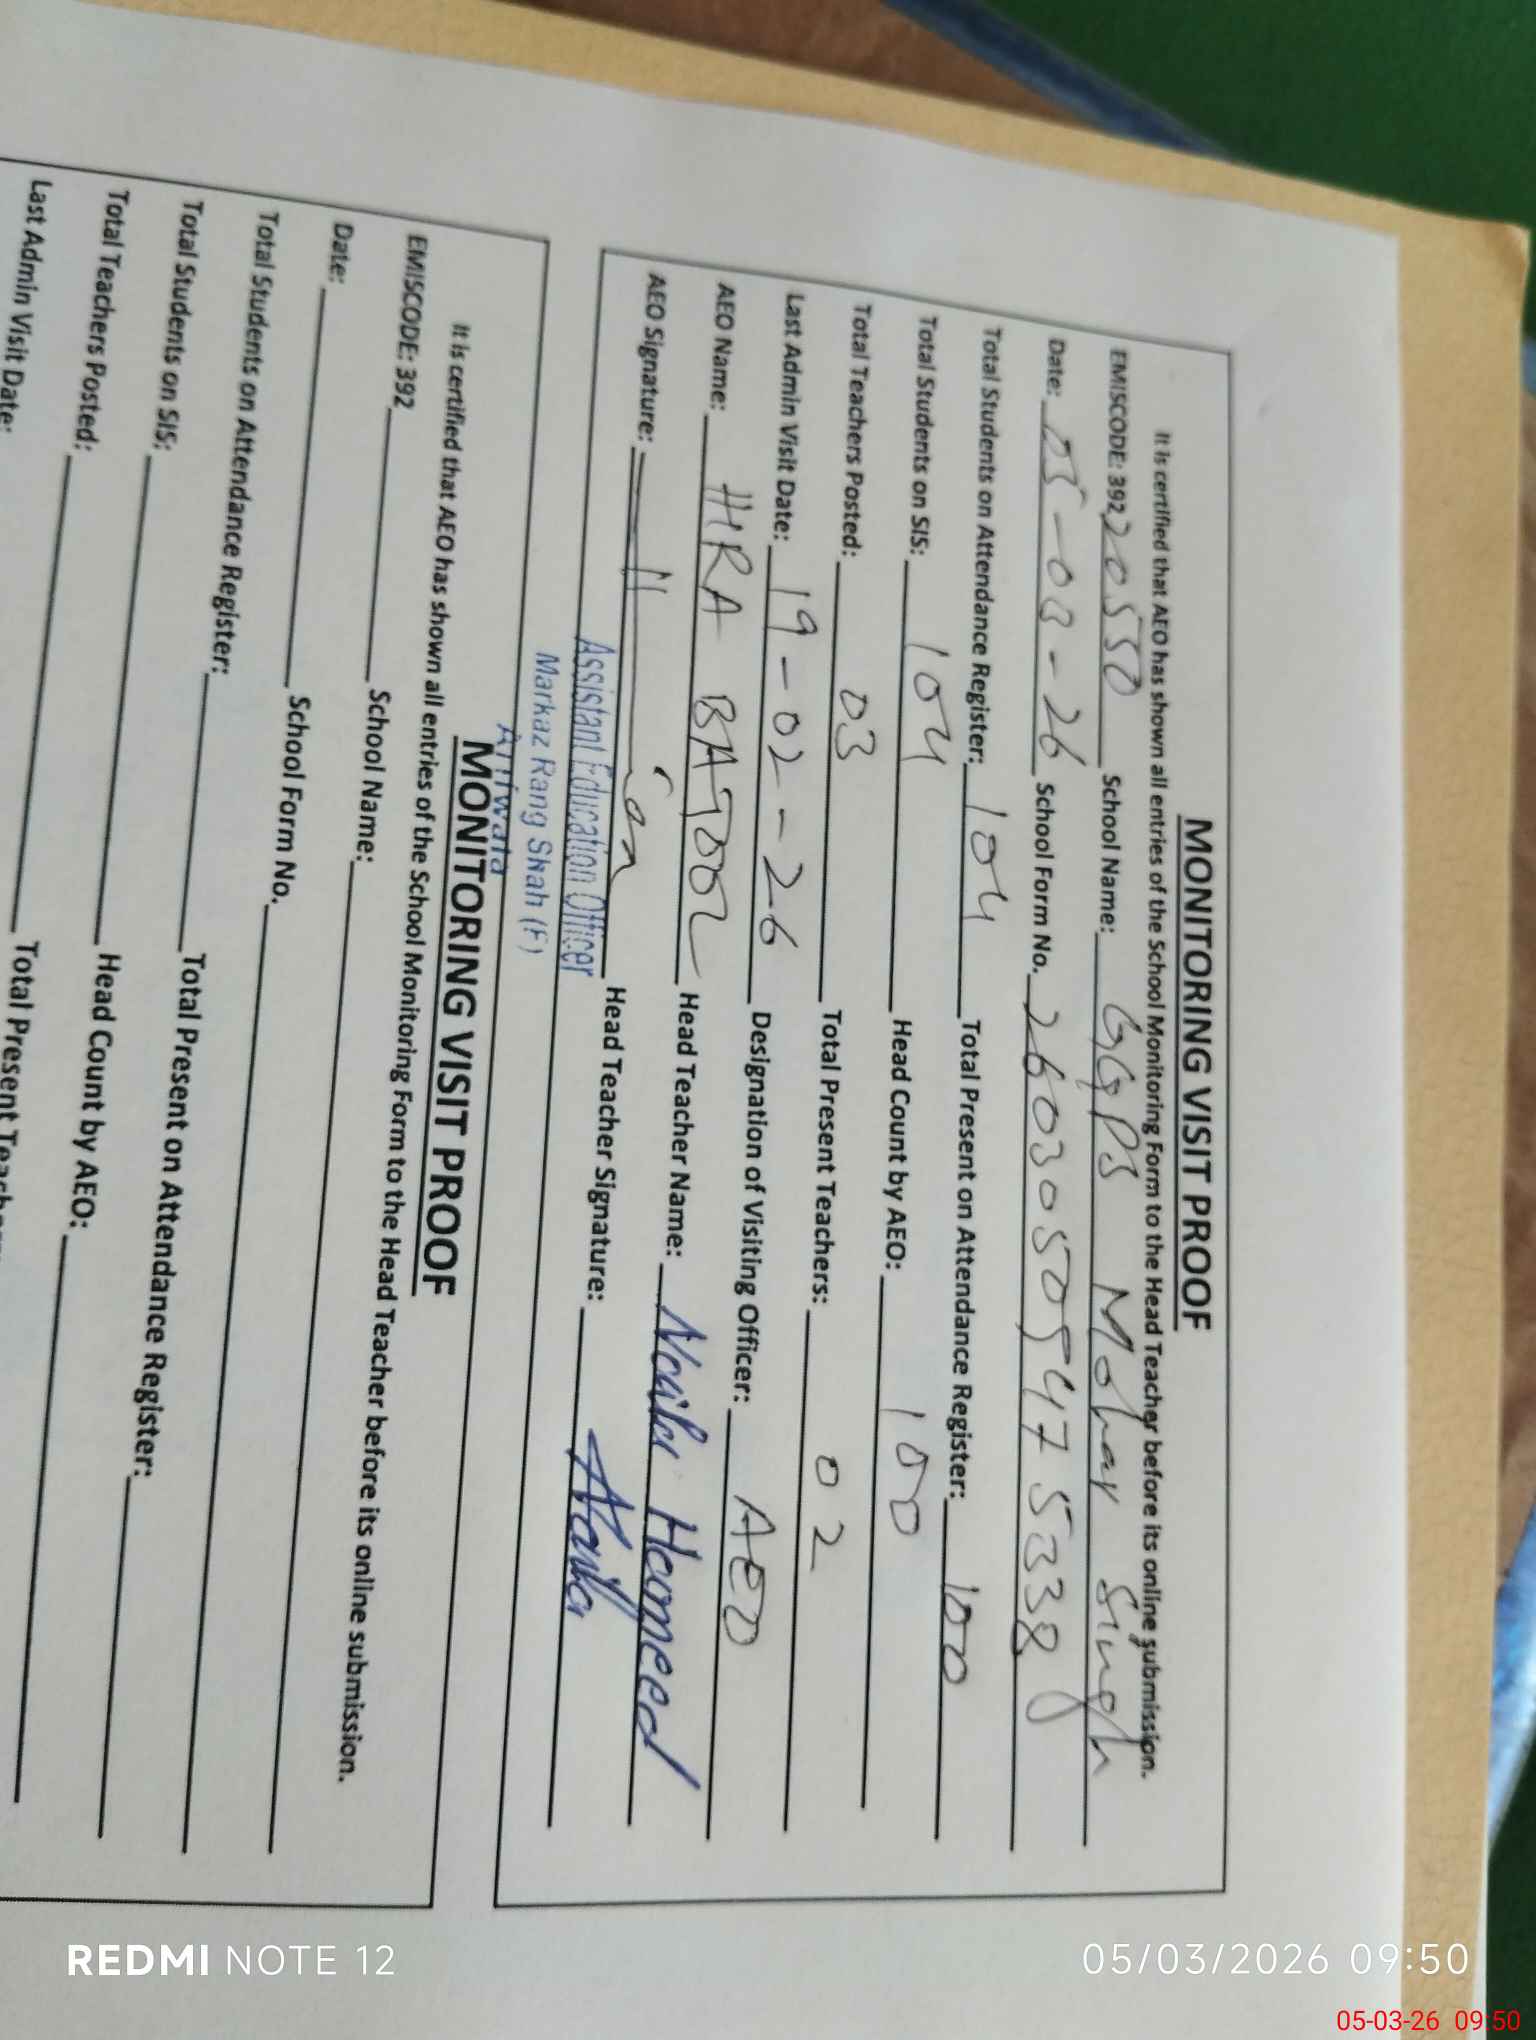 MONITORING VISIT PROOF
It is certified that AEO has shown all entries of the School Monitoring Form to the Head Teacher before its online submission.
EMISCODE: 39220550 School Name: GGPS Mohar Singh
Date: 05-03-26 School Form No. 2603050947 5338
Total Students on Attendance Register: 104 Total Present on Attendance Register: 100
Total Students on SIS: 104 Head Count by AEO: 100
Total Teachers Posted: 03 Total Present Teachers: 02
Last Admin Visit Date: 19-02-26 Designation of Visiting Officer: AEO
AEO Name: HIRA BATOOL Head Teacher Name: Naila Hameed
AEO Signature: Head Teacher Signature: Naila
Assistant Education Officer
Markaz Rang Shah (F)
Arifwala
MONITORING VISIT PROOF
It is certified that AEO has shown all entries of the School Monitoring Form to the Head Teacher before its online submission.
EMISCODE: 392 School Name:
Date: School Form No.
Total Students on Attendance Register: Total Present on Attendance Register:
Total Students on SIS: Head Count by AEO:
Total Teachers Posted: Total Present
Last Admin Visit Date:
REDMI NOTE 12
05/03/2026 09:50
05-03-26 09:50